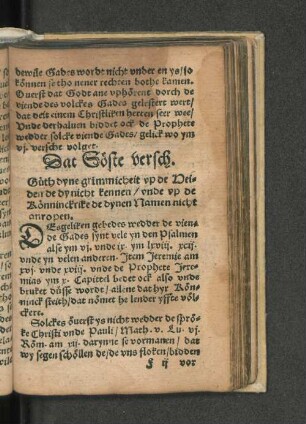 dewile Gades wordt nicht vnder en ys/so
können se tho nener rechten bothe kamen.
Ouerst dat Godt ane vphörent dorch de
viende des volckes Gades gelestert wert/
dat deit einem Christliken herten seer wee/
Vnde derhaluen biddet ock de Prophete
wedder solcke viende Gades/ gelick wo ym
vj. versche volget.
Dat Söste versch.
Güth dyne grimmicheit vp de Hei-
den de dy nicht kennen/ vnde vp de
Könninckrike de dynen Namen nicht
anropen.
DEsgeliken gebedes wedder de vien-
de Gades synt vele yn den Psalmen
alse ym vj. vnde ix. ym lxviij. xcij.
vnde yn velen anderen. Item Jeremie am
xvj. vnde xviij. vnde de Prophete Jere-
mias ym x. Capittel bedet ock also vnde
bruket düsse wordt/ allene dat hyr Kön-
ninck steith/dat nömet he lender effte völ-
ckere.
Solckes öuerst ys nicht wedder de sprö-
ke Christi vnde Pauli/ Math. v. Lu. vj.
Röm. am xij. darynne se vormanen/ dat
wy segen schöllen de/de vns floken/bidden
F ij vor